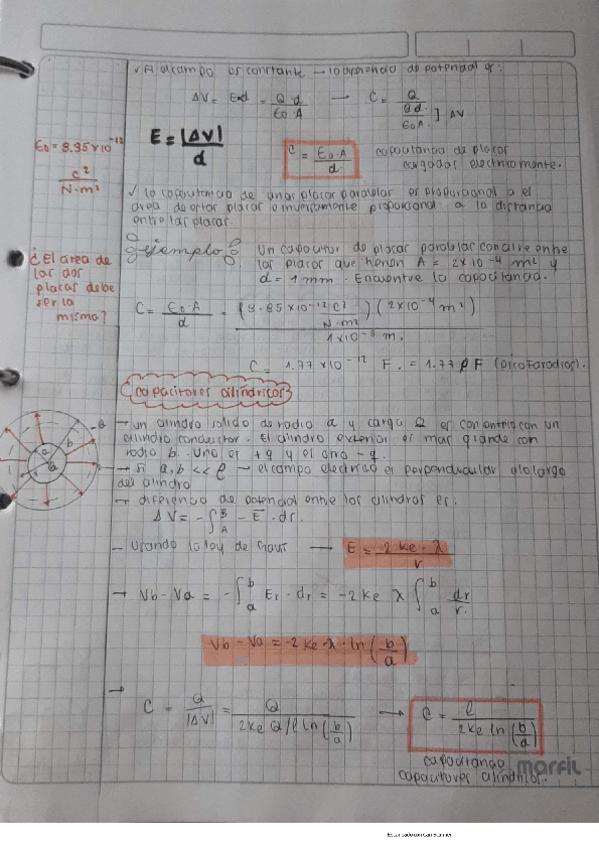 ✓ Si el campo es constante → la diferencia de potencial es:
ΔV = E·d = Q·d / ε₀·A → C = Q / (Qd / ε₀A) ] ΔV
ε₀ = 8.85×10⁻¹²
C² / N·m²
E = |ΔV| / d
C = ε₀·A / d
capacitancia de placas
cargadas electricamente.
✓ la capacitancia de unas placas paralelas es proporcional a el
area de estas placas e inversamente proporcional a la distancia
entre las placas.
¿El area de
las dos
placas debe
ser la
misma?
Ejemplo: Un capacitor de placas paralelas con aire entre
las placas que tienen A = 2×10⁻⁴ m² y
d = 1 mm. Encuentre la capacitancia.
C = ε₀·A / d = (8.85×10⁻¹² C² / N·m²)(2×10⁻⁴ m²) / 1×10⁻³ m.
C = 1.77×10⁻¹² F. = 1.77 pF (picoFaradios).
Capacitores cilíndricos
→ un cilindro solido de radio a y carga Q es concentrico con un
cilindro conductor. El cilindro exterior es mas grande con
radio b. Uno es +q y el otro -q.
→ Si a, b << ℓ → el campo electrico es perpendicular a lo largo
del cilindro
→ diferencia de potencial entre los cilindros es:
ΔV = -∫ᴮ_A - E · dr.
- Usando la ley de Gauss → E = 2ke·λ / r
→ Vb - Va = -∫ᵇ_a Er · dr = -2ke λ ∫ᵇ_a dr / r.
Vb - Va = -2ke·λ·ln(b/a)
→ C = Q / |ΔV| = Q / 2ke Q/ℓ ln(b/a) → C = ℓ / 2ke ln(b/a)
-Q
a
b
Q
capacitancia
capacitores cilíndricos.
marfil
Escaneado con CamScanner